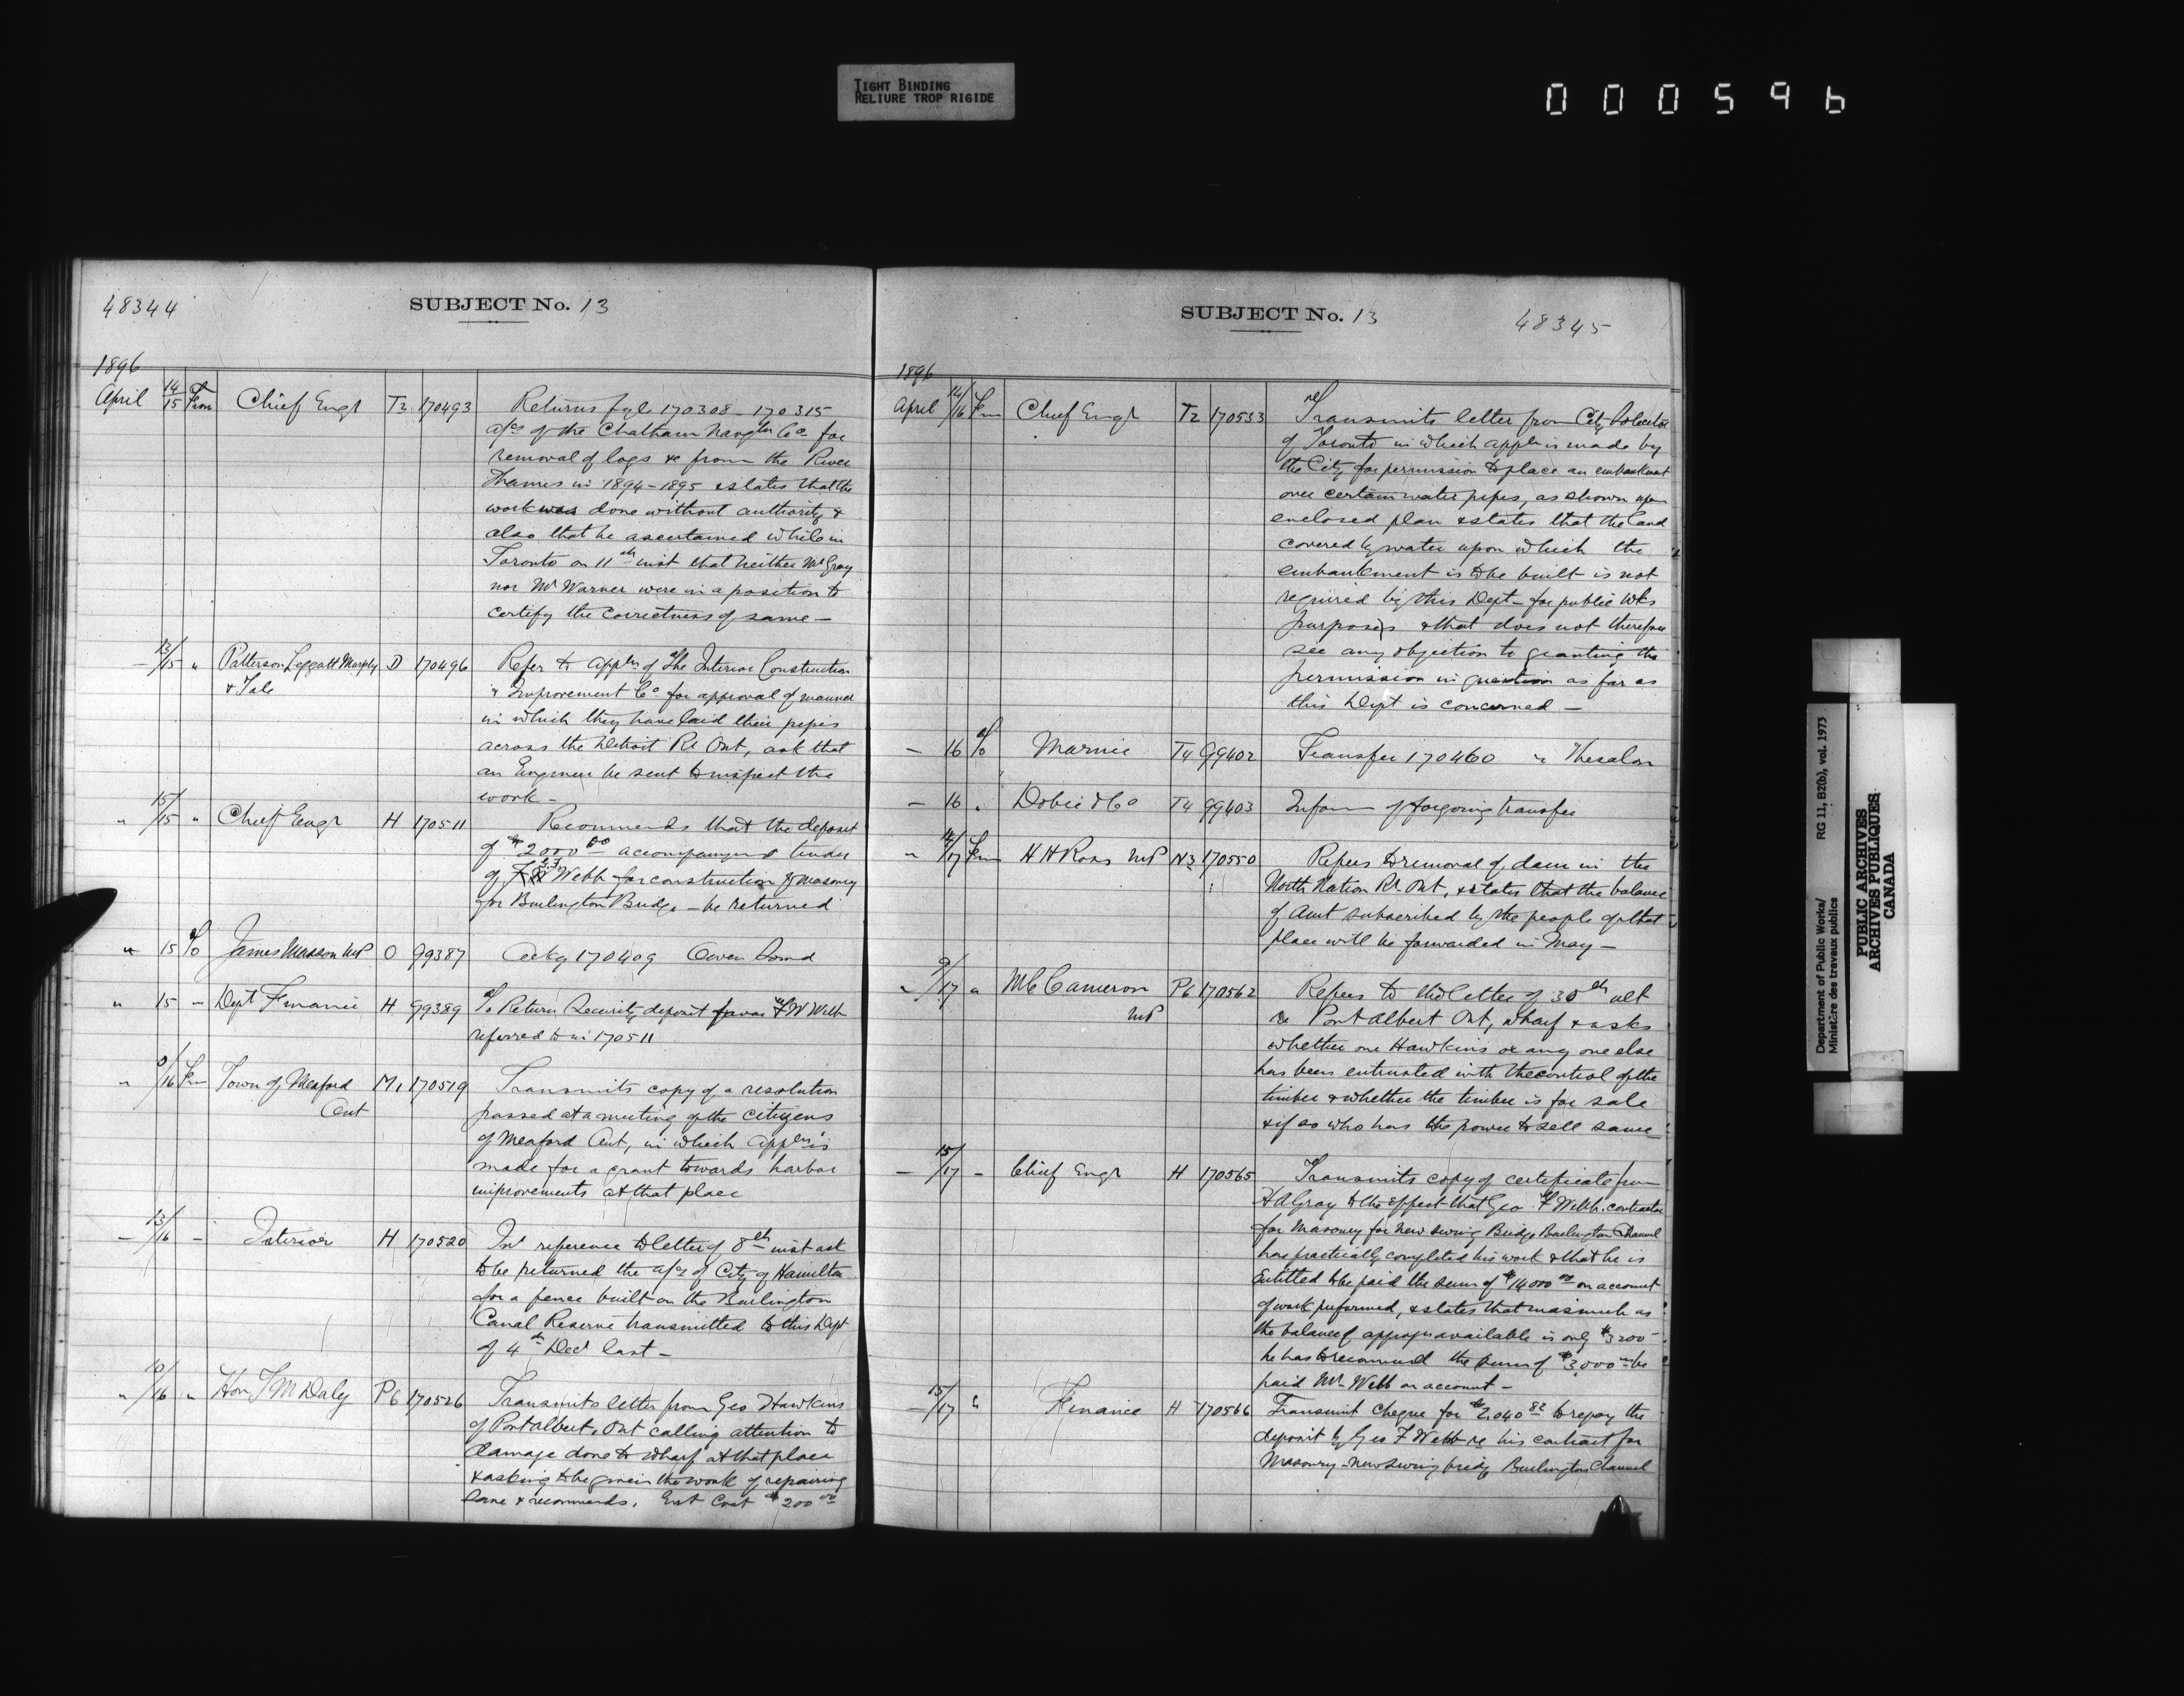 TIGHT BINDING
RELIURE TROP RIGIDE
000596
48344
SUBJECT No. 13
1896
April 14/15 From Chief Engr T2 170493 Returns fyle 170308-170315
a/cs of the Chatham Navgtn Co for
removal of logs &c from the River
Thames in 1894-1895 & states that the
work was done without authority &
also that he ascertained while in
Toronto on 11th inst that neither Mr Gray
nor Mr Warner were in a position to
certify the correctness of same —
— 13/15 " Patterson Leggatt Murphy D 170496 Refer to appln of the Interior Construction
& Tale
& Improvement Co for approval of manner
in which they have laid their pipes
across the Detroit Rr Ont, ask that
an Engineer be sent to inspect the
work —
" 15/15 " Chief Engr H 170511 Recommends that the deposit
of $2000 00 accompanying tender
of G.F. Webb for construction of masonry
for Burlington Bridge — be returned
" 15 To James Masson MP O 99387 Ackg 170409 Owen Sound
" 15 — Dept Finance H 99389 To Return Security deposit favor F W Webb
referred to in 170511
" 9/16 From Town of Meaford M1 170519 Transmits copy of a resolution
Ont
passed at a meeting of the citizens
of Meaford Ont, in which appln is
made for a grant towards harbor
improvements at that place
— 13/16 — Interior H 170520 In reference to letter of 8th inst ask
to be returned the a/cs of City of Hamilton
for a fence built on the Burlington
Canal Reserve transmitted to this Dept
of 4th Decr last —
" 10/16 " Hon T M Daly P6 170526 Transmits letter from Geo Hawkins
of Port Albert, Ont calling attention to
damage done to wharf at that place
& asking to be given the work of repairing
same & recommends. Est Cost $200 00
SUBJECT No. 13
48345
1896
April 14/16 From Chief Engr T2 170533 Transmits letter from City Solicitor
of Toronto in which appln is made by
the City for permission to place an embankment
over certain water pipes, as shown upon
enclosed plan & states that the land
covered by water upon which the
embankment is to be built is not
required by this Dept — for public Wks
purposes & that does not therefore
see any objection to granting the
permission in question as far as
this Dept is concerned —
— 16 To Marine T4 99402 Transfer 170460 re Thesalon
— 16 " Dobie & Co T4 99403 Inform of forgoing transfer
" 14/17 From H H Ross MP N3 170550 Refers to removal of dam in the
North Nation Rr Ont, & states that the balance
of amt subscribed by the people of that
place will be forwarded in May —
" 9/17 " M C Cameron P6 170562 Refers to his letter of 30th ult
MP
re Port Albert Ont, wharf & asks
whether one Hawkins or any one else
has been entrusted with the control of the
timber & whether the timber is for sale
& if so who has the power to sell same
— 15/17 — Chief Engr H 170565 Transmits copy of certificate from
H A Gray to the effect that Geo F Webb contractor
for Masonry for New Swing Bridge Burlington Channel
has practically completed his work & that he is
Entitled to be paid the sum of $14000 00 on account
of work performed, & states that inasmuch as
the balance of appropn available is only $3200 —
he has to recommend the sum of $3,000 00 be
paid Mr Webb on account —
— 15/17 " Finance H 170566 Transmit Cheque for $2,040 82 to repay the
deposit by Geo F Webb re his contract for
Masonry — new swing bridge Burlington Channel
Department of Public Works/
Ministère des travaux publics
RG 11, B2(b), vol. 1973
PUBLIC ARCHIVES
ARCHIVES PUBLIQUES
CANADA